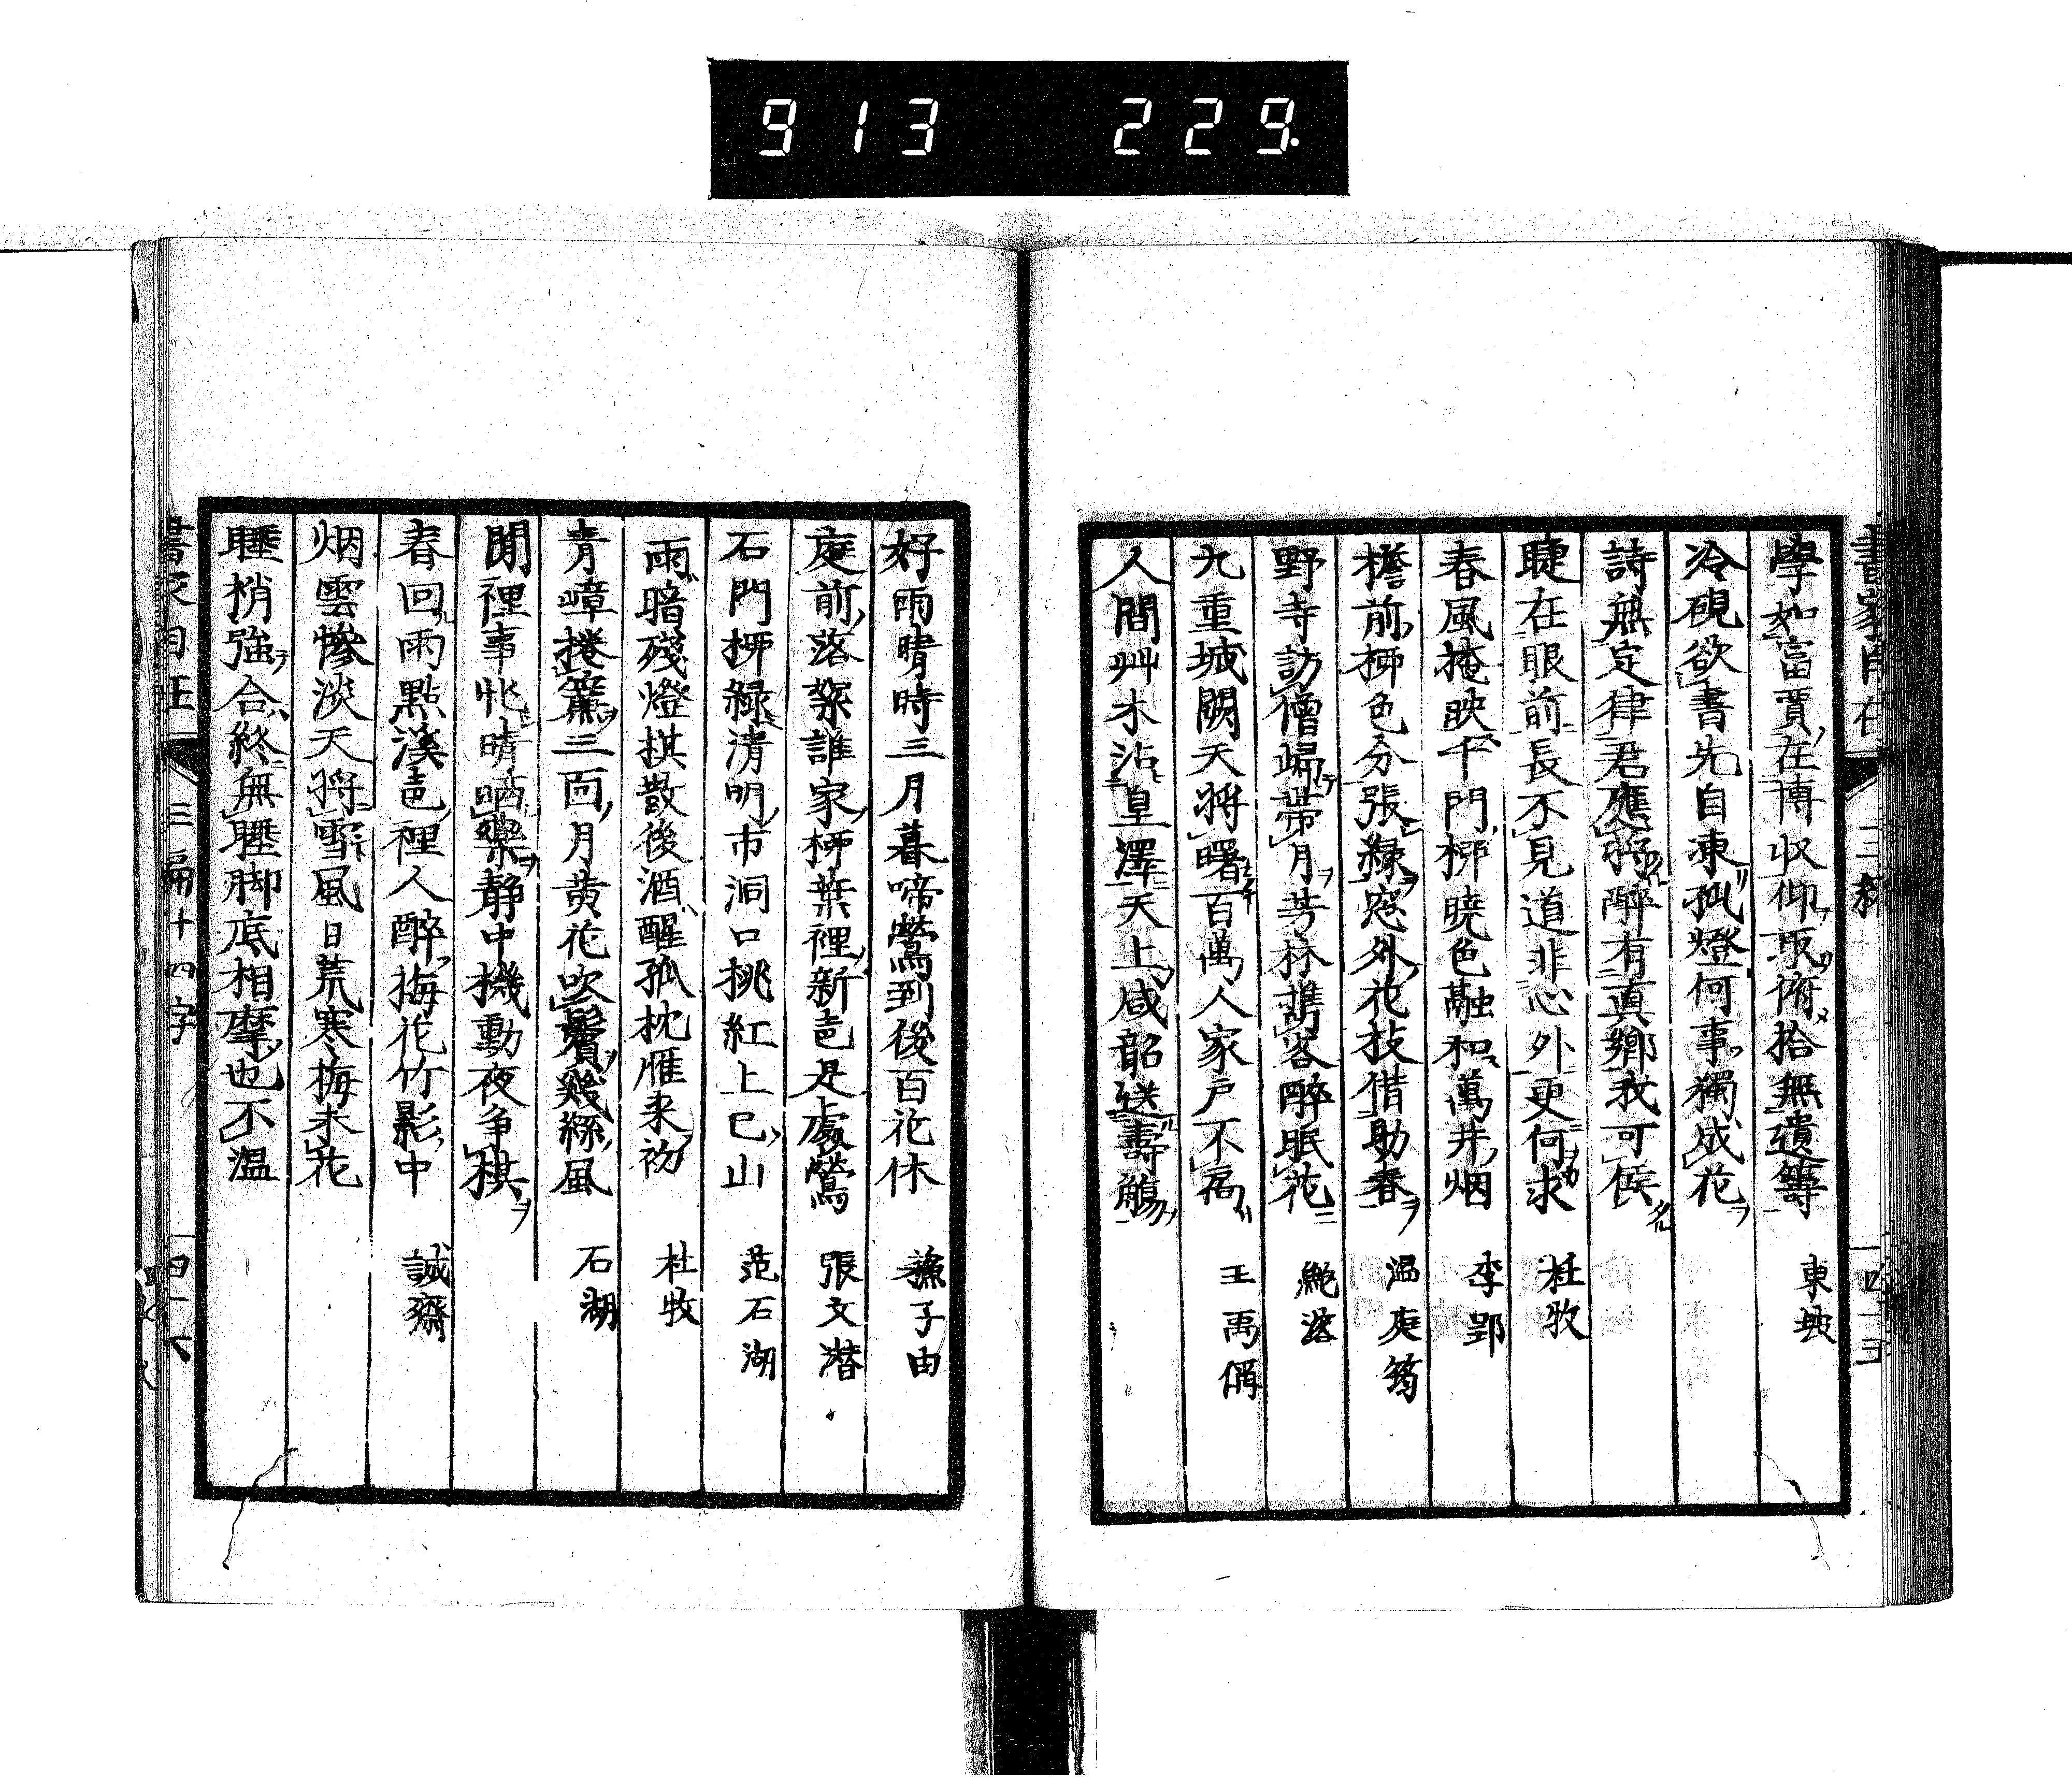 913 229.
學如富賈在博収仰取俯拾無遺籌 東坡
冷硯欲書先自凍孤燈何事獨成花
詩無定律君應將醉有眞鄉我可侯
睫在眼前長不見道非心外更何求 杜牧
春風掩映千門柳曉色融和萬井烟 李郢
檐前柳色分張綠窓外花枝借助春 温庭筠
野寺訪僧歸帶月芳林携客醉眠花 鮑溶
九重城闕天將曙百萬人家戸不扃 王禹偁
人間艸木沾皇澤天上咸韶送壽觴
好雨晴時三月暮啼鶯到後百花休 蘇子由
庭前落絮誰家柳葉裡新㐌是處鶯 張文潜
石門柳緑清明市洞口桃紅上巳山 范石湖
雨暗殘燈棋散後酒醒孤枕雁来初 杜牧
青嶂捲簾三面月黄花吹鬢幾絲風 石湖
閒裡事忙晴晒藥静中機動夜争棋
春回雨點溪㐌裡人醉梅花竹影中 誠齋
烟雲慘淡天將雪風日荒寒梅未花
睡梢強合終無睡脚底相摩也不温
三編十四字